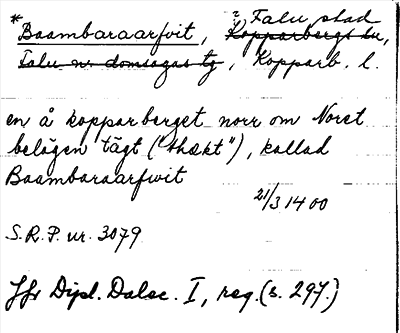 *Baambaraarfvit, i Falu stad
Kopparbergs sn,
Falu n. domsagas tg, Kopparb. l.
en å kopparberget norr om Noret
belägen tägt ("thækt"), kallad
Baambaraarfwit
21/3 1400
S.R.P. nr. 3079
Jfr Dipl. Dalec. I, reg. (s. 297.)